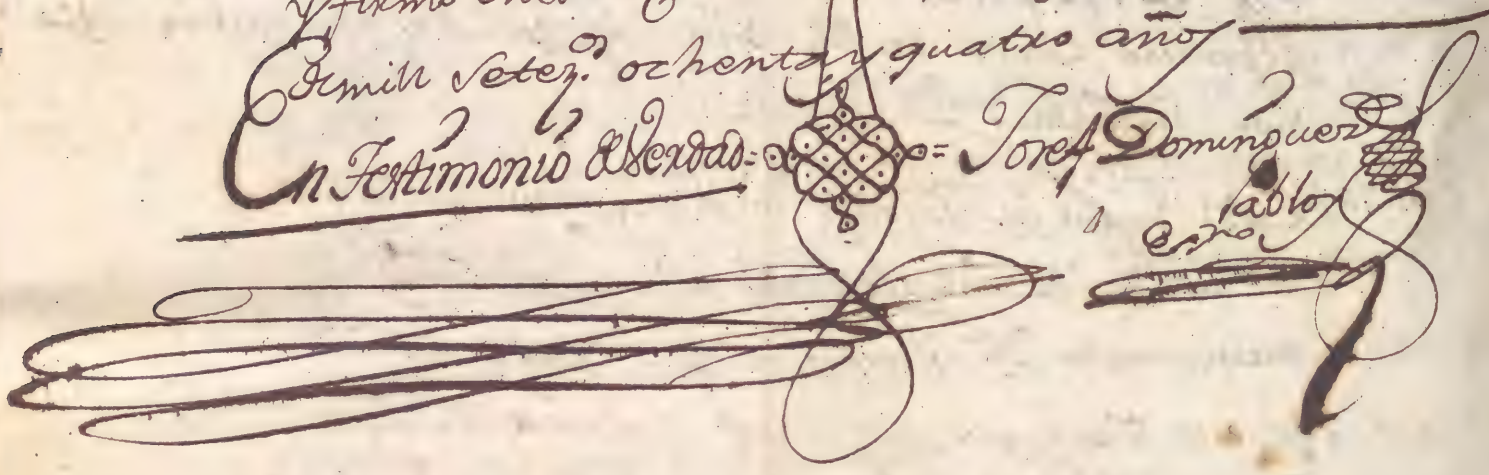 y firmo en el
de mill Setez.os ochenta y quatro años
En Testimonio de Verdad = = Josef Dominguez
Pablos
Essno